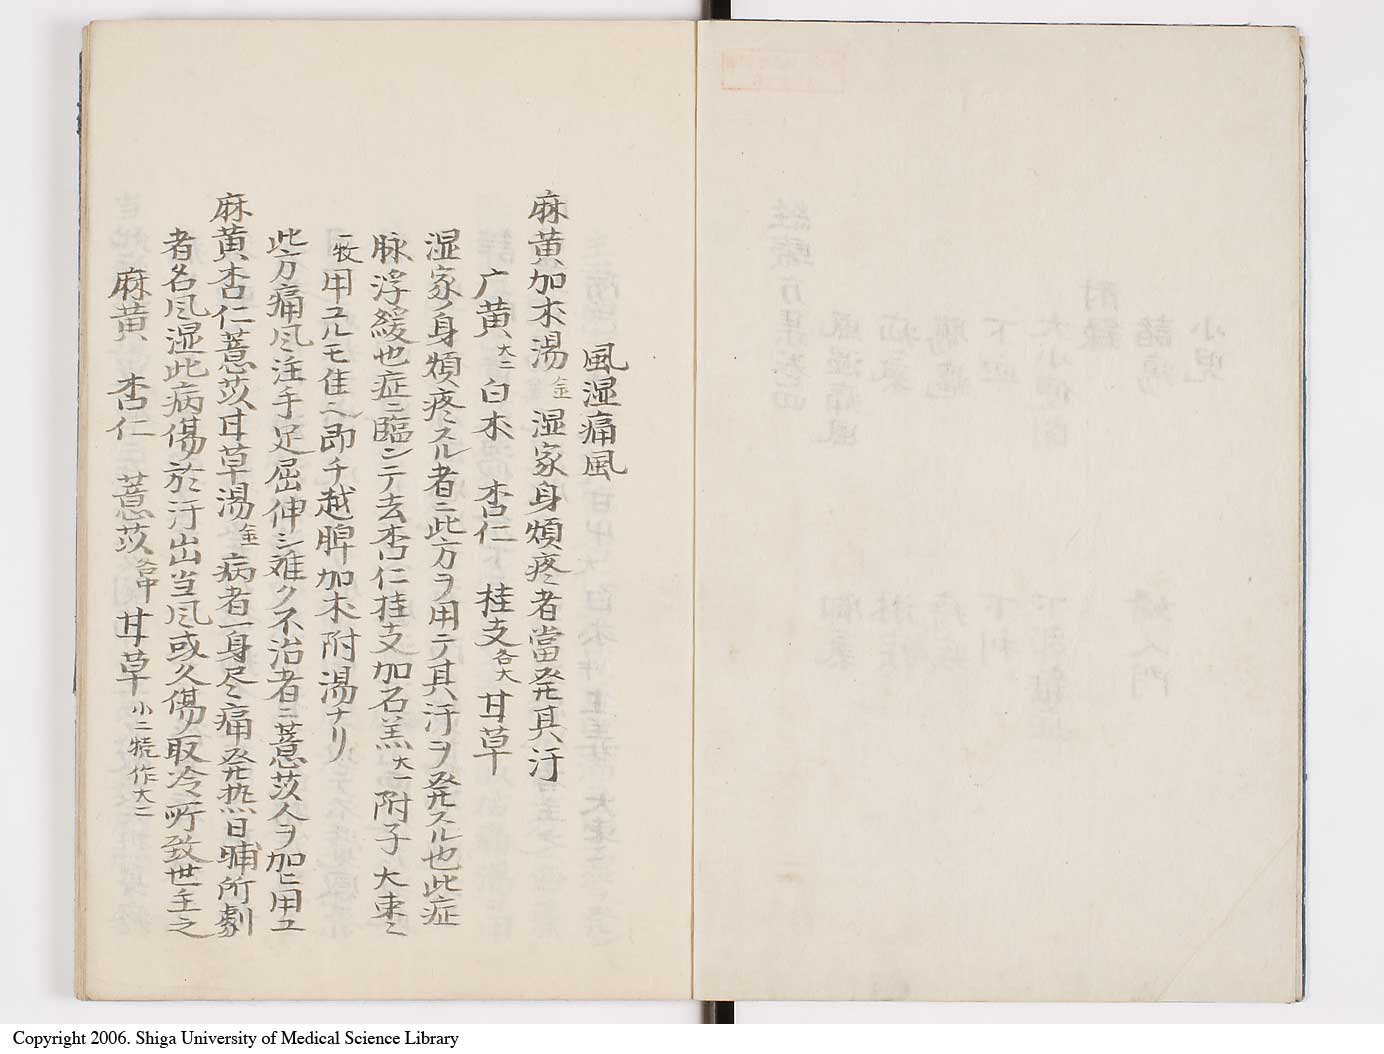 風湿痛風
麻黄加朮湯 金 湿家身煩疼者當発其汗
广黄 大二 白朮 杏仁 桂支 各大 甘草
湿家ノ身煩疼スル者ニ此方ヲ用テ其汗ヲ発スル也此症
脉浮緩也症ニ臨ンテ去杏仁桂支加石羔 大一 附子 大棗ニ
一牧用ユルモ佳ヘ即チ越脾加朮附湯ナリ
此方痛风注手足屈伸シ难ク不治者ニ薏苡人ヲ加ヒ用ユ
麻黄杏仁薏苡甘草湯 金 病者一身尽痛発热日晡所劇
者名风湿此病傷於汗出当风或久傷取冷所致世主之
麻黄 杏仁 薏苡 各中 甘草 小二 㷟作大二
Copyright 2006. Shiga University of Medical Science Library